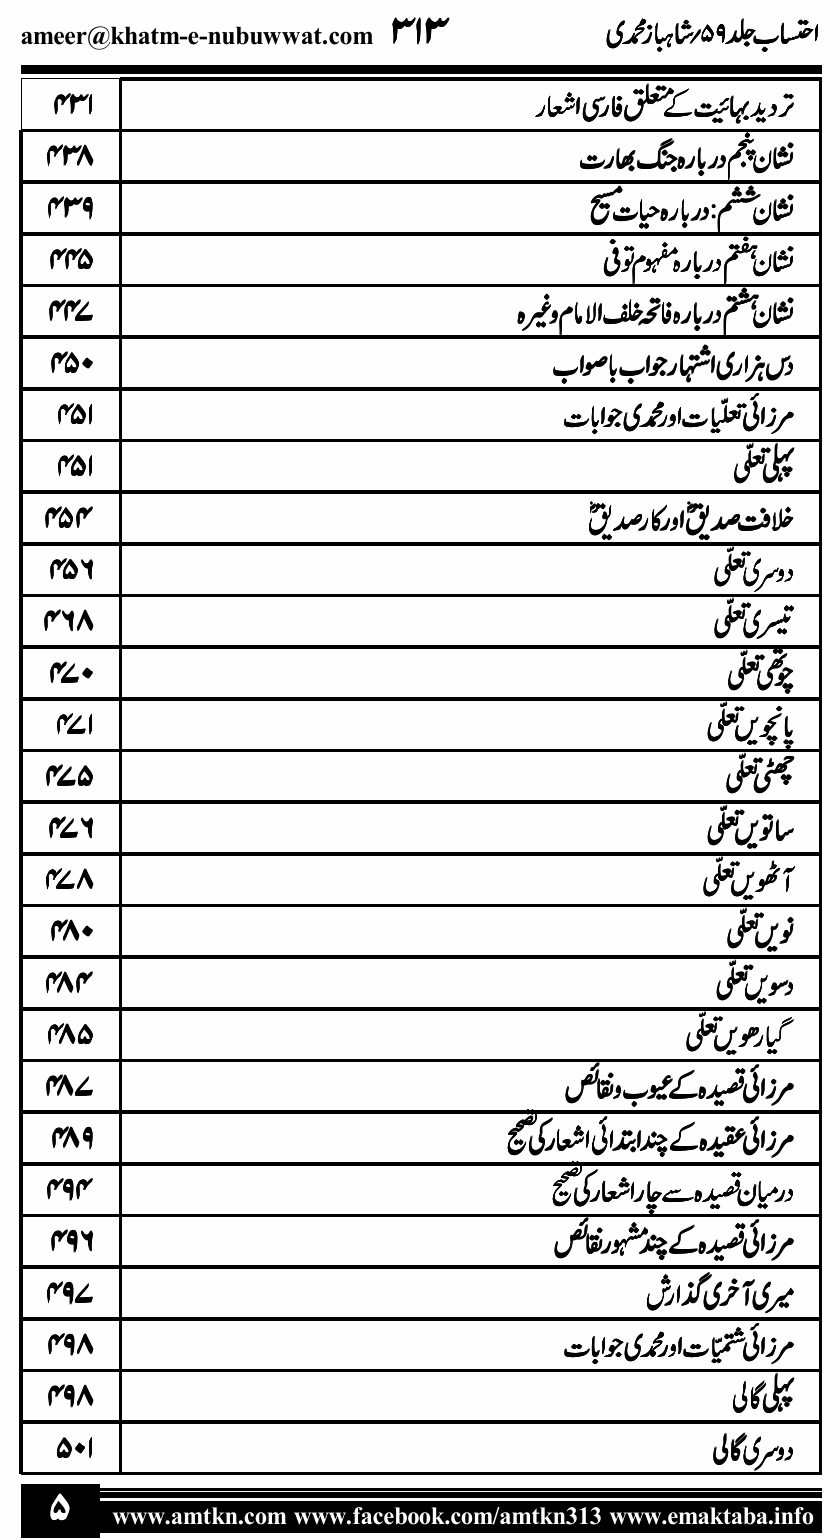 احتساب جلد ۵۹؍شاہباز محمدی ۳۱۳ ameer@khatm-e-nubuwwat.com
تردید بہائیت کے متعلق فارسی اشعار ۴۳۱
نشان پنجم دربارہ جنگ بھارت ۴۳۸
نشان ششم: دربارہ حیات مسیح ۴۳۹
نشان ہفتم دربارہ مفہوم توفی ۴۴۵
نشان ہشتم دربارہ فاتحہ خلف الامام وغیرہ ۴۴۷
دس ہزاری اشتہار جواب باصواب ۴۵۰
مرزائی تعلّیات اور محمدی جوابات ۴۵۱
پہلی تعلّی ۴۵۱
خلافت صدیقؓ اور کار صدیقؓ ۴۵۴
دوسری تعلّی ۴۵۶
تیسری تعلّی ۴۶۸
چوتھی تعلّی ۴۷۰
پانچویں تعلّی ۴۷۱
چھٹی تعلّی ۴۷۵
ساتویں تعلّی ۴۷۶
آٹھویں تعلّی ۴۷۸
نویں تعلّی ۴۸۰
دسویں تعلّی ۴۸۴
گیارھویں تعلّی ۴۸۵
مرزائی قصیدہ کے عیوب و نقائص ۴۸۷
مرزائی عقیدہ کے چند ابتدائی اشعار کی تصحیح ۴۸۹
درمیان قصیدہ سے چار اشعار کی تصحیح ۴۹۴
مرزائی قصیدہ کے چند مشہور نقائص ۴۹۶
میری آخری گذارش ۴۹۷
مرزائی شتمیّات اور محمدی جوابات ۴۹۸
پہلی گالی ۴۹۸
دوسری گالی ۵۰۱
۵ www.amtkn.com www.facebook.com/amtkn313 www.emaktaba.info